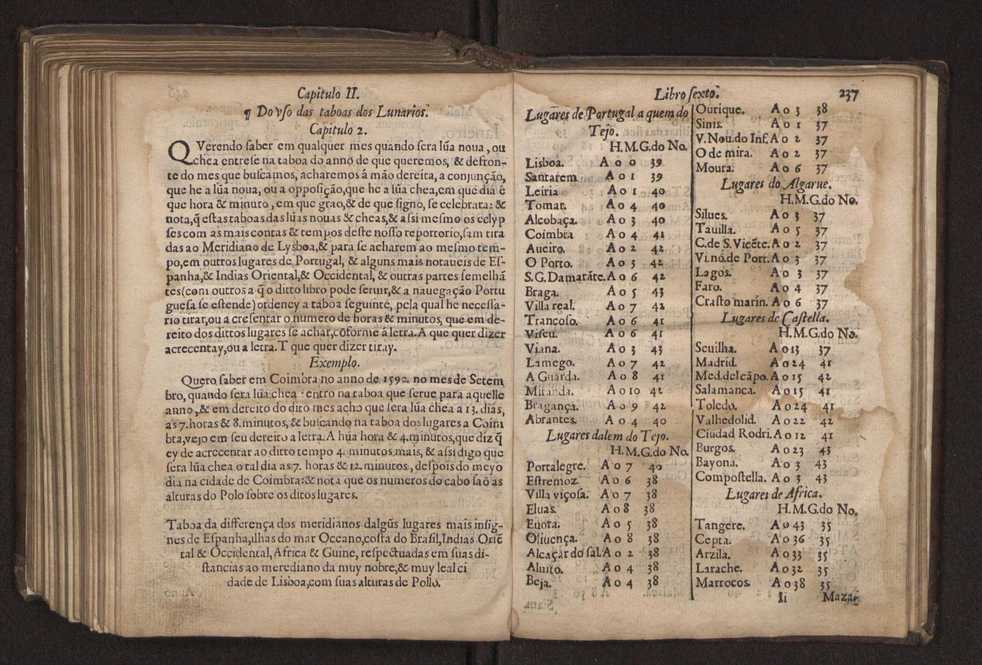 Capitulo II.
¶ Do vſo das taboas dos Lunarios.
Capitulo 2.
QVerendo ſaber em qualquer mes quando ſera lũa noua, ou
chea entreſe na taboa do anno de que queremos, & defron-
te do mes que buſcamos, acharemos â mão dereita, a conjunção,
que he a lũa noua, ou a oppoſição, que he a lũa chea, em que dia ê
que hora & minuto, em que grao, & de que ſigno, ſe celebrara: &
nota, q̃ eſtas taboas das lũas nouas & cheas, & aſsi meſmo os eclyp
ſes com as mais contas & tempos deſte noſſo repottorio, ſam tira
das ao Meridiano de Lyſboa, & para ſe acharem ao meſmo tem-
po, em outros lugares de Portugal, & alguns mais notaueis de Eſ-
panha, & Indias Oriental, & Occidental, & outras partes ſemelhã
tes (com outros a q̃ o ditto libro pode ſeruir, & a nauegação Portu
gueſa ſe eſtende) ordeney a taboa ſeguinte, pela qual he neceſſa-
rio tirar, ou acreſentar o numero de horas & minutos, que em de-
reito dos dittos lugares ſe achar, cõforme â letra. A que quer dizer
acrecentay, ou a letra. T que quer dizer tiray.
Exemplo.
Quero ſaber em Coimbra no anno de 1592. no mes de Setem
bro, quando ſera lũa chea · entro na taboa que ſerue para aquelle
anno, & em dereito do dito mes acho que ſera lũa chea a 13. dias,
as 7. horas & 8. minutos, & buſcando na taboa dos lugares a Coim
bra, vejo em ſeu dereito a letra. A hũa hora & 4. minutos, que diz q̃
ey de acrecentar ao ditto tempo 4. minutos mais, & aſsi digo que
ſera lũa chea o tal dia as 7. horas & 12. minutos, deſpois do meyo
dia na cidade de Coimbra: & nota que os numeros do cabo ſaõ as
alturas do Polo ſobre os ditos lugares.
Taboa da differença dos meridianos dalgũs lugares mais inſig-
nes de Eſpanha, ilhas do mar Oceano, coſta do Braſil, Indias Oriẽ
tal & Occidental, Africa & Guine, reſpectuadas em ſuas di-
ſtancias ao merediano da muy nobre, & muy leal ci
dade de Lisboa, com ſuas alturas de Pollo.
Libro ſexto. 237
Lugares de Portugal a quem do
Tejo.
H. M. G. do No.
Lisboa. A 0 0 39
Santarem A 0 1 39
Leiria A 0 1 40
Tomar. A 0 4 40
Alcobaça. A 0 3 40
Coimbra A 0 4 41
Aueiro. A 0 2 42
O Porto. A 0 3 42
S. G. Damarãte. A 0 6 42
Braga. A 0 5 43
Villa real. A 0 7 42
Trancoſo. A 0 6 41
Viſeu. A 0 6 41
Viana. A 0 3 43
Lamego. A 0 7 42
A Guarda. A 0 8 41
Miranda. A 0 10 42
Bragança. A 0 9 42
Abrantes. A 0 4 40
Lugares dalem do Tejo.
H. M. G. do No.
Portalegre. A 0 7 40
Eſtremoz A 0 6 38
Villa viçoſa. A 0 7 38
Eluas. A 0 8 38
Euora. A 0 5 38
Oliuença. A 0 8 38
Alcaçar do ſal. A 0 2 38
Aluito. A 0 4 38
Beja. A 0 4 38
Ourique. A 0 3 38
Sinis. A 0 1 37
V. Nou. do Inf. A 0 2 37
O de mira. A 0 2 37
Moura. A 0 6 37
Lugares do Algarue.
H. M. G. do No.
Silues. A 0 3 37
Tauilla. A 0 5 37
C. de S. Vicẽte. A 0 2 37
Vi. nó. de Port. A 0 3 37
Lagos. A 0 3 37
Faro. A 0 4 37
Craſto marin. A 0 6 37
Lugares de Caſtella.
H. M. G. do No.
Seuilha. A 0 13 37
Madrid. A 0 24 41
Med. del cãpo. A 0 15 42
Salamanca. A 0 15 41
Toledo. A 0 24 41
Valhedolid. A 0 22 42
Ciudad Rodri. A 0 12 41
Burgos. A 0 23 43
Bayona. A 0 3 43
Compoſtella. A 0 3 43
Lugares de Africa.
H. M. G. do No.
Tangere. A 0 43 35
Cepta. A 0 36 35
Arzila. A 0 33 35
Larache. A 0 32 35
Marrocos. A 0 38 35
Ii Mazag